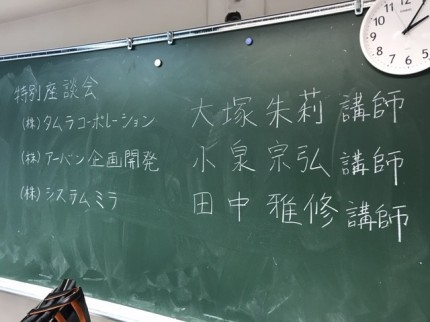 特別座談会
(株)タムラコーポレーション 大塚朱莉 講師
(株)アーバン企画開発 小泉宗弘 講師
(株)システムミラ 田中雅修 講師